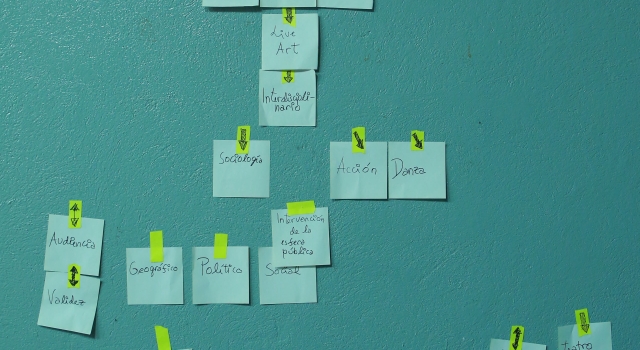 Live
Art
Interdiscipli-
nario
Sociología
Acción
Danza
Intervención
de la
esfera
pública
Audiencia
Geográfico
Político
Social
Validez
teatro